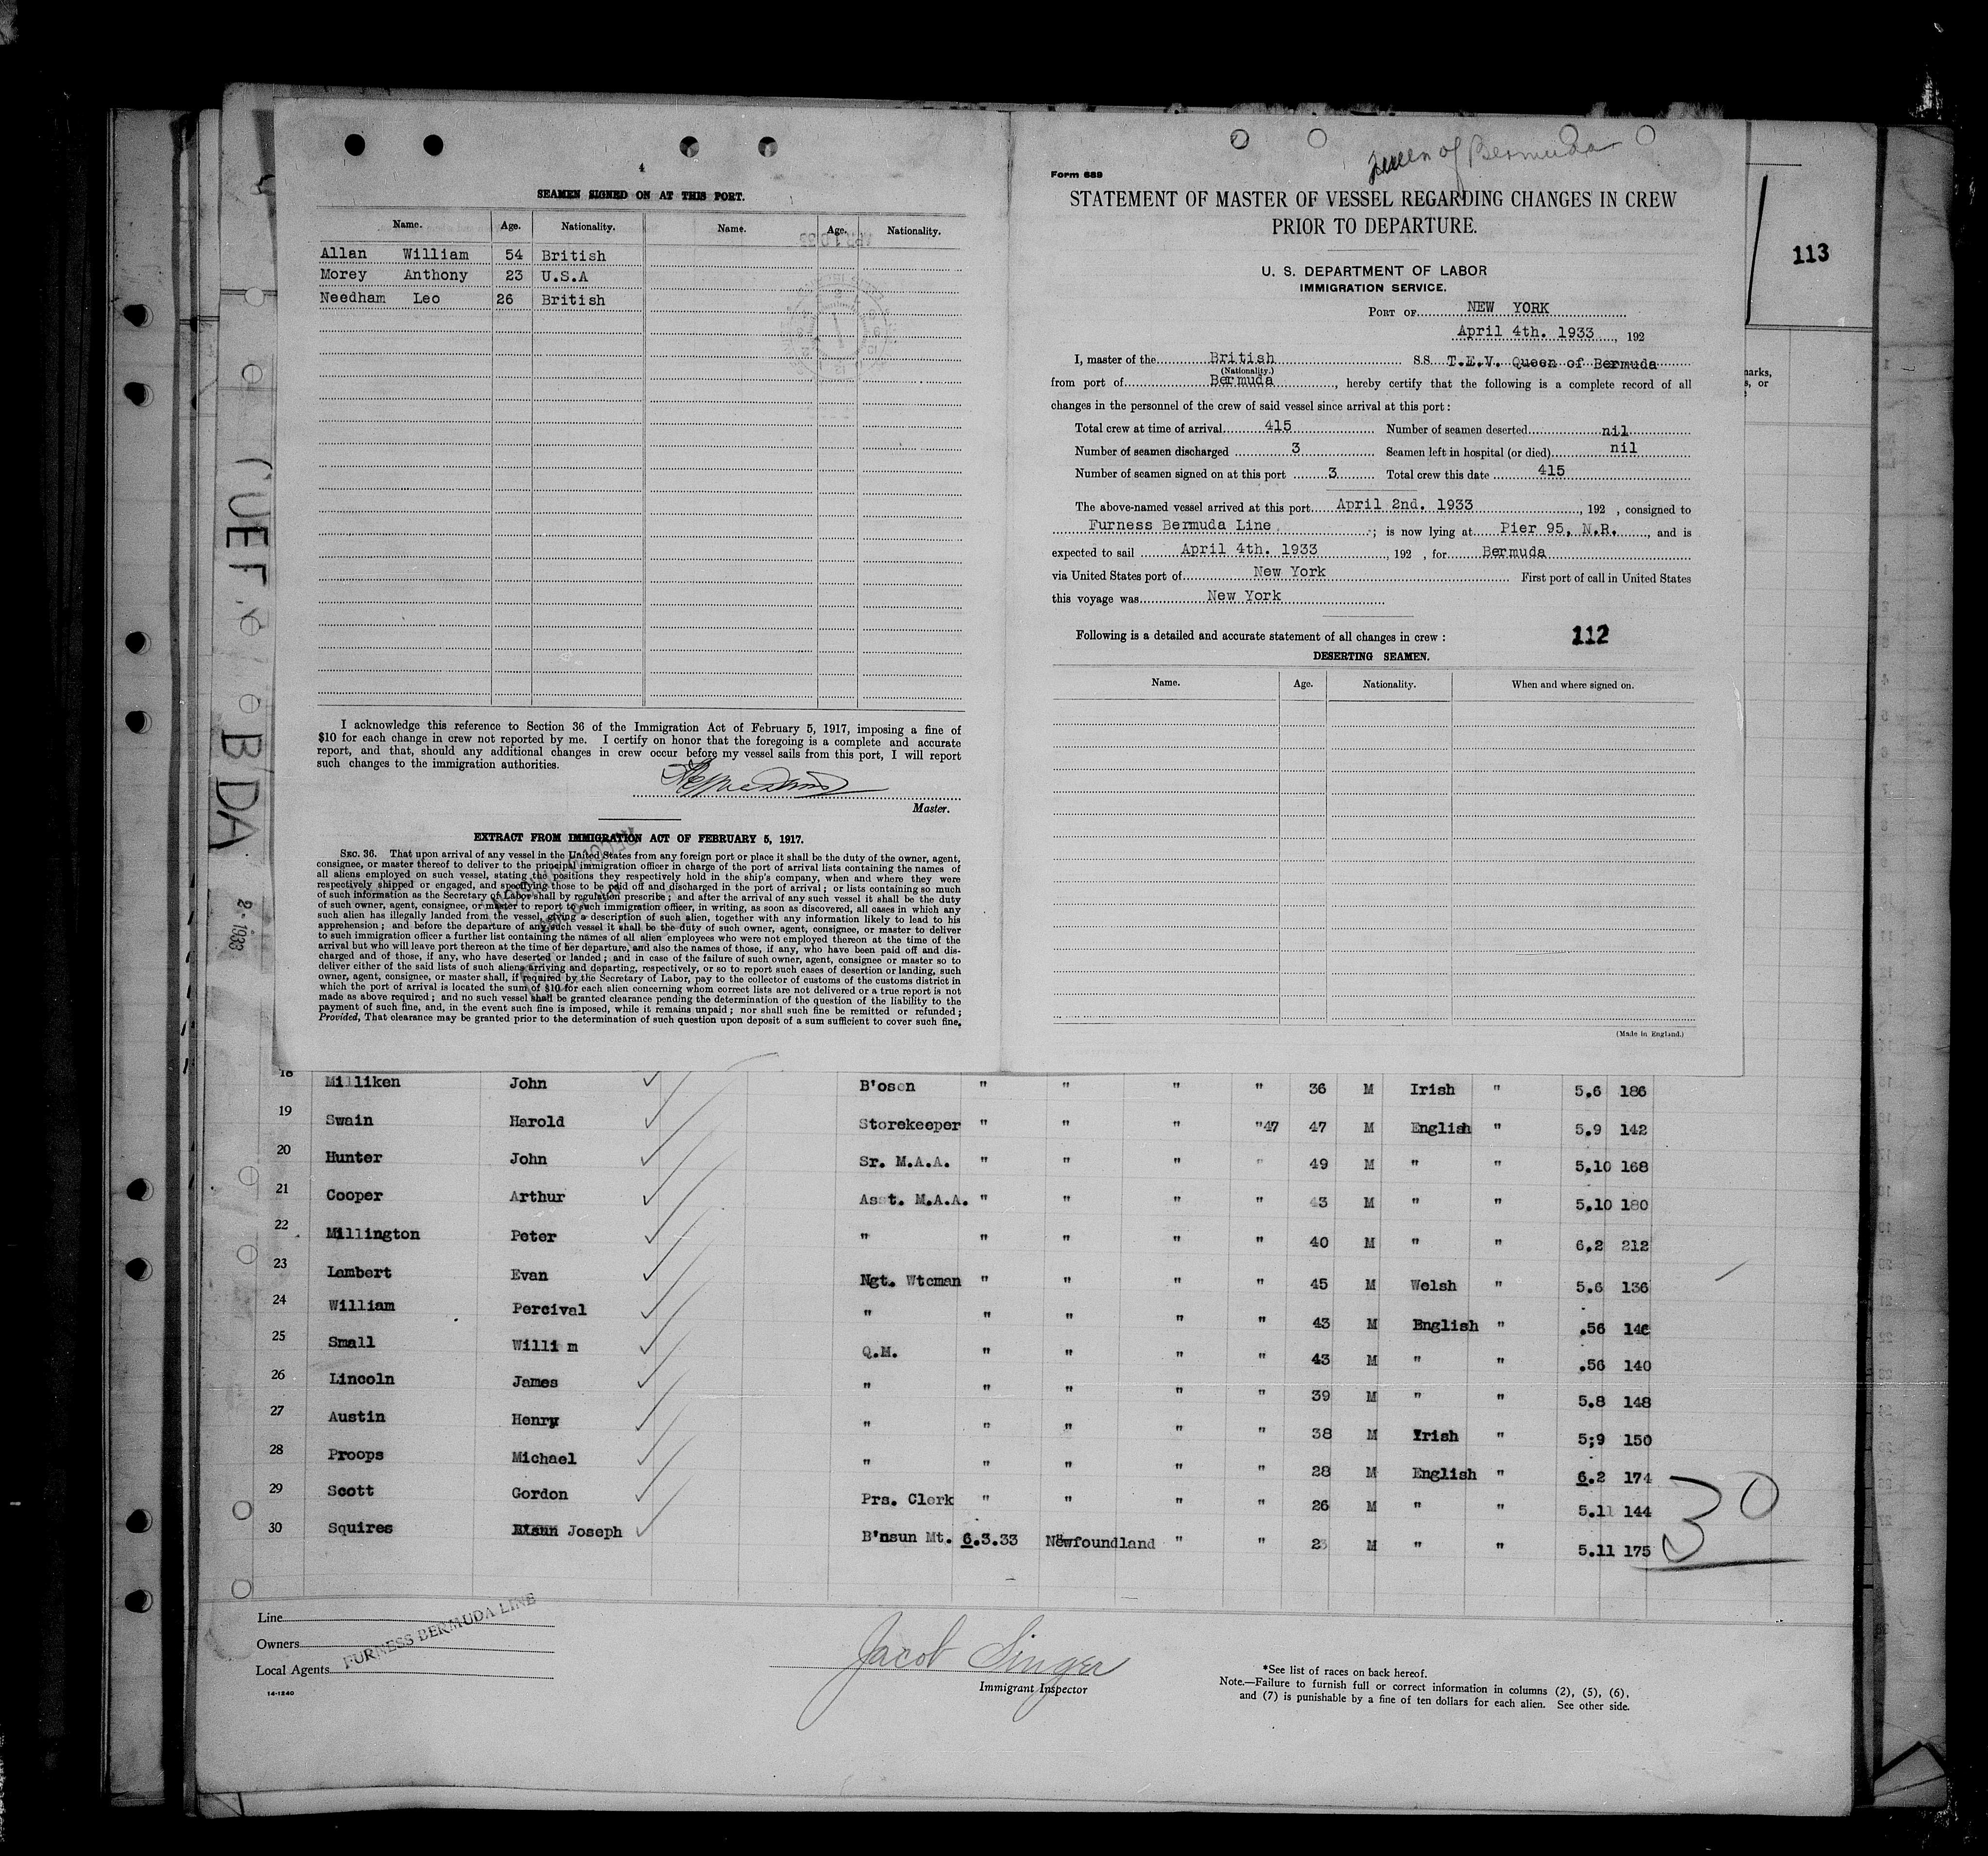 4
SEAMEN SIGNED ON AT THIS PORT.
Name. Age. Nationality. Name. Age. Nationality.
Allan William 54 British
Morey Anthony 23 U.S.A
Needham Leo 26 British
I acknowledge this reference to Section 36 of the Immigration Act of February 5, 1917, imposing a fine of
$10 for each change in crew not reported by me. I certify on honor that the foregoing is a complete and accurate
report, and that, should any additional changes in crew occur before my vessel sails from this port, I will report
such changes to the immigration authorities.
Master.
EXTRACT FROM IMMIGRATION ACT OF FEBRUARY 5, 1917.
SEC. 36. That upon arrival of any vessel in the United States from any foreign port or place it shall be the duty of the owner, agent,
consignee, or master thereof to deliver to the principal immigration officer in charge of the port of arrival lists containing the names of
all aliens employed on such vessel, stating the positions they respectively hold in the ship's company, when and where they were
respectively shipped or engaged, and specifying those to be paid off and discharged in the port of arrival; or lists containing so much
of such information as the Secretary of Labor shall by regulation prescribe; and after the arrival of any such vessel it shall be the duty
of such owner, agent, consignee, or master to report to such immigration officer, in writing, as soon as discovered, all cases in which any
such alien has illegally landed from the vessel, giving a description of such alien, together with any information likely to lead to his
apprehension; and before the departure of any such vessel it shall be the duty of such owner, agent, consignee, or master to deliver
to such immigration officer a further list containing the names of all alien employees who were not employed thereon at the time of the
arrival but who will leave port thereon at the time of her departure, and also the names of those, if any, who have been paid off and dis-
charged and of those, if any, who have deserted or landed; and in case of the failure of such owner, agent, consignee or master so to
deliver either of the said lists of such aliens arriving and departing, respectively, or so to report such cases of desertion or landing, such
owner, agent, consignee, or master shall, if required by the Secretary of Labor, pay to the collector of customs of the customs district in
which the port of arrival is located the sum of $10 for each alien concerning whom correct lists are not delivered or a true report is not
made as above required; and no such vessel shall be granted clearance pending the determination of the question of the liability to the
payment of such fine, and, in the event such fine is imposed, while it remains unpaid; nor shall such fine be remitted or refunded;
Provided, That clearance may be granted prior to the determination of such question upon deposit of a sum sufficient to cover such fine.
Queen of Bermuda
Form 689
STATEMENT OF MASTER OF VESSEL REGARDING CHANGES IN CREW
PRIOR TO DEPARTURE.
U. S. DEPARTMENT OF LABOR
IMMIGRATION SERVICE.
PORT OF NEW YORK
April 4th. 1933, 192
I, master of the British S.S. T.E.V. Queen of Bermuda
(Nationality.)
from port of Bermuda, hereby certify that the following is a complete record of all
changes in the personnel of the crew of said vessel since arrival at this port:
Total crew at time of arrival 415 Number of seamen deserted nil
Number of seamen discharged 3 Seamen left in hospital (or died) nil
Number of seamen signed on at this port 3 Total crew this date 415
The above-named vessel arrived at this port April 2nd. 1933, 192 , consigned to
Furness Bermuda Line ; is now lying at Pier 95, N.R., and is
expected to sail April 4th. 1933, 192 , for Bermuda
via United States port of New York First port of call in United States
this voyage was New York
Following is a detailed and accurate statement of all changes in crew: 112
DESERTING SEAMEN.
Name. Age. Nationality. When and where signed on.
(Made in England.)
113
BDA
2- 1933
18 Milliken John B'oson " " " " 36 M Irish " 5.6 186
19 Swain Harold Storekeeper " " " "47 47 M English " 5.9 142
20 Hunter John Sr. M.A.A. " " " " 49 M " " 5.10 168
21 Cooper Arthur Asst. M.A.A. " " " " 43 M " " 5.10 180
22 Millington Peter " " " " " 40 M " " 6.2 212
23 Lambert Evan Ngt. Wtcman " " " " 45 M Welsh " 5.6 136
24 William Percival " " " " " 43 M English " .56 140
25 Small Willi m Q.M. " " " " 43 M " " .56 140
26 Lincoln James " " " " " 39 M " " 5.8 148
27 Austin Henry " " " " " 38 M Irish " 5;9 150
28 Proops Michael " " " " " 28 M English " 6.2 174
29 Scott Gordon Prs. Clerk " " " " 26 M " " 5.11 144
30 Squires Joseph B'nsun Mt. 6.3.33 Newfoundland " " 23 M " " 5.11 175
30
Line
Owners
Local Agents
FURNESS BERMUDA LINE
14-1240
Jacob Singer
Immigrant Inspector
*See list of races on back hereof.
Note.—Failure to furnish full or correct information in columns (2), (5), (6),
and (7) is punishable by a fine of ten dollars for each alien. See other side.